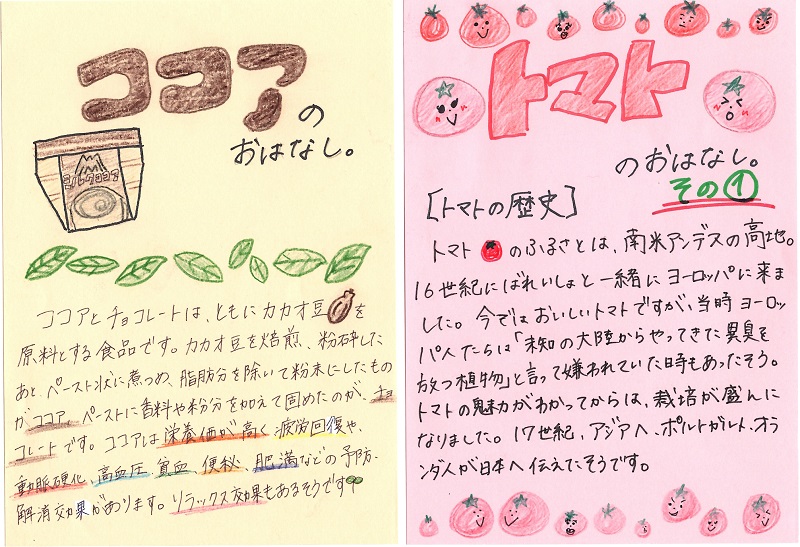 ココアの
おはなし。
ミルクココア
ココアとチョコレートは、ともにカカオ豆を
原料とする食品です。カカオ豆を焙煎、粉砕した
あと、ペースト状に煮つめ、脂肪分を除いて粉末にしたもの
がココア。ペーストに香料や粉分を加えて固めたのが、チョ
コレートです。ココアは栄養価が高く疲労回復や、
動脈硬化、高血圧、貧血、便秘、肥満などの予防・
解消効果があります。リラックス効果もあるそうです
トマト
のおはなし。
その①
[トマトの歴史]
トマトのふるさとは、南米アンデスの高地。
16世紀にばれいしょと一緒にヨーロッパに来ま
した。今ではおいしいトマトですが、当時ヨーロッ
パ人たちは「未知の大陸からやってきた異臭を
放つ植物」と言って嫌われていた時もあったそう。
トマトの魅力がわかってからは、栽培が盛んに
なりました。17世紀、アジアへ。ポルトガル人、オラ
ンダ人が日本へ伝えたそうです。